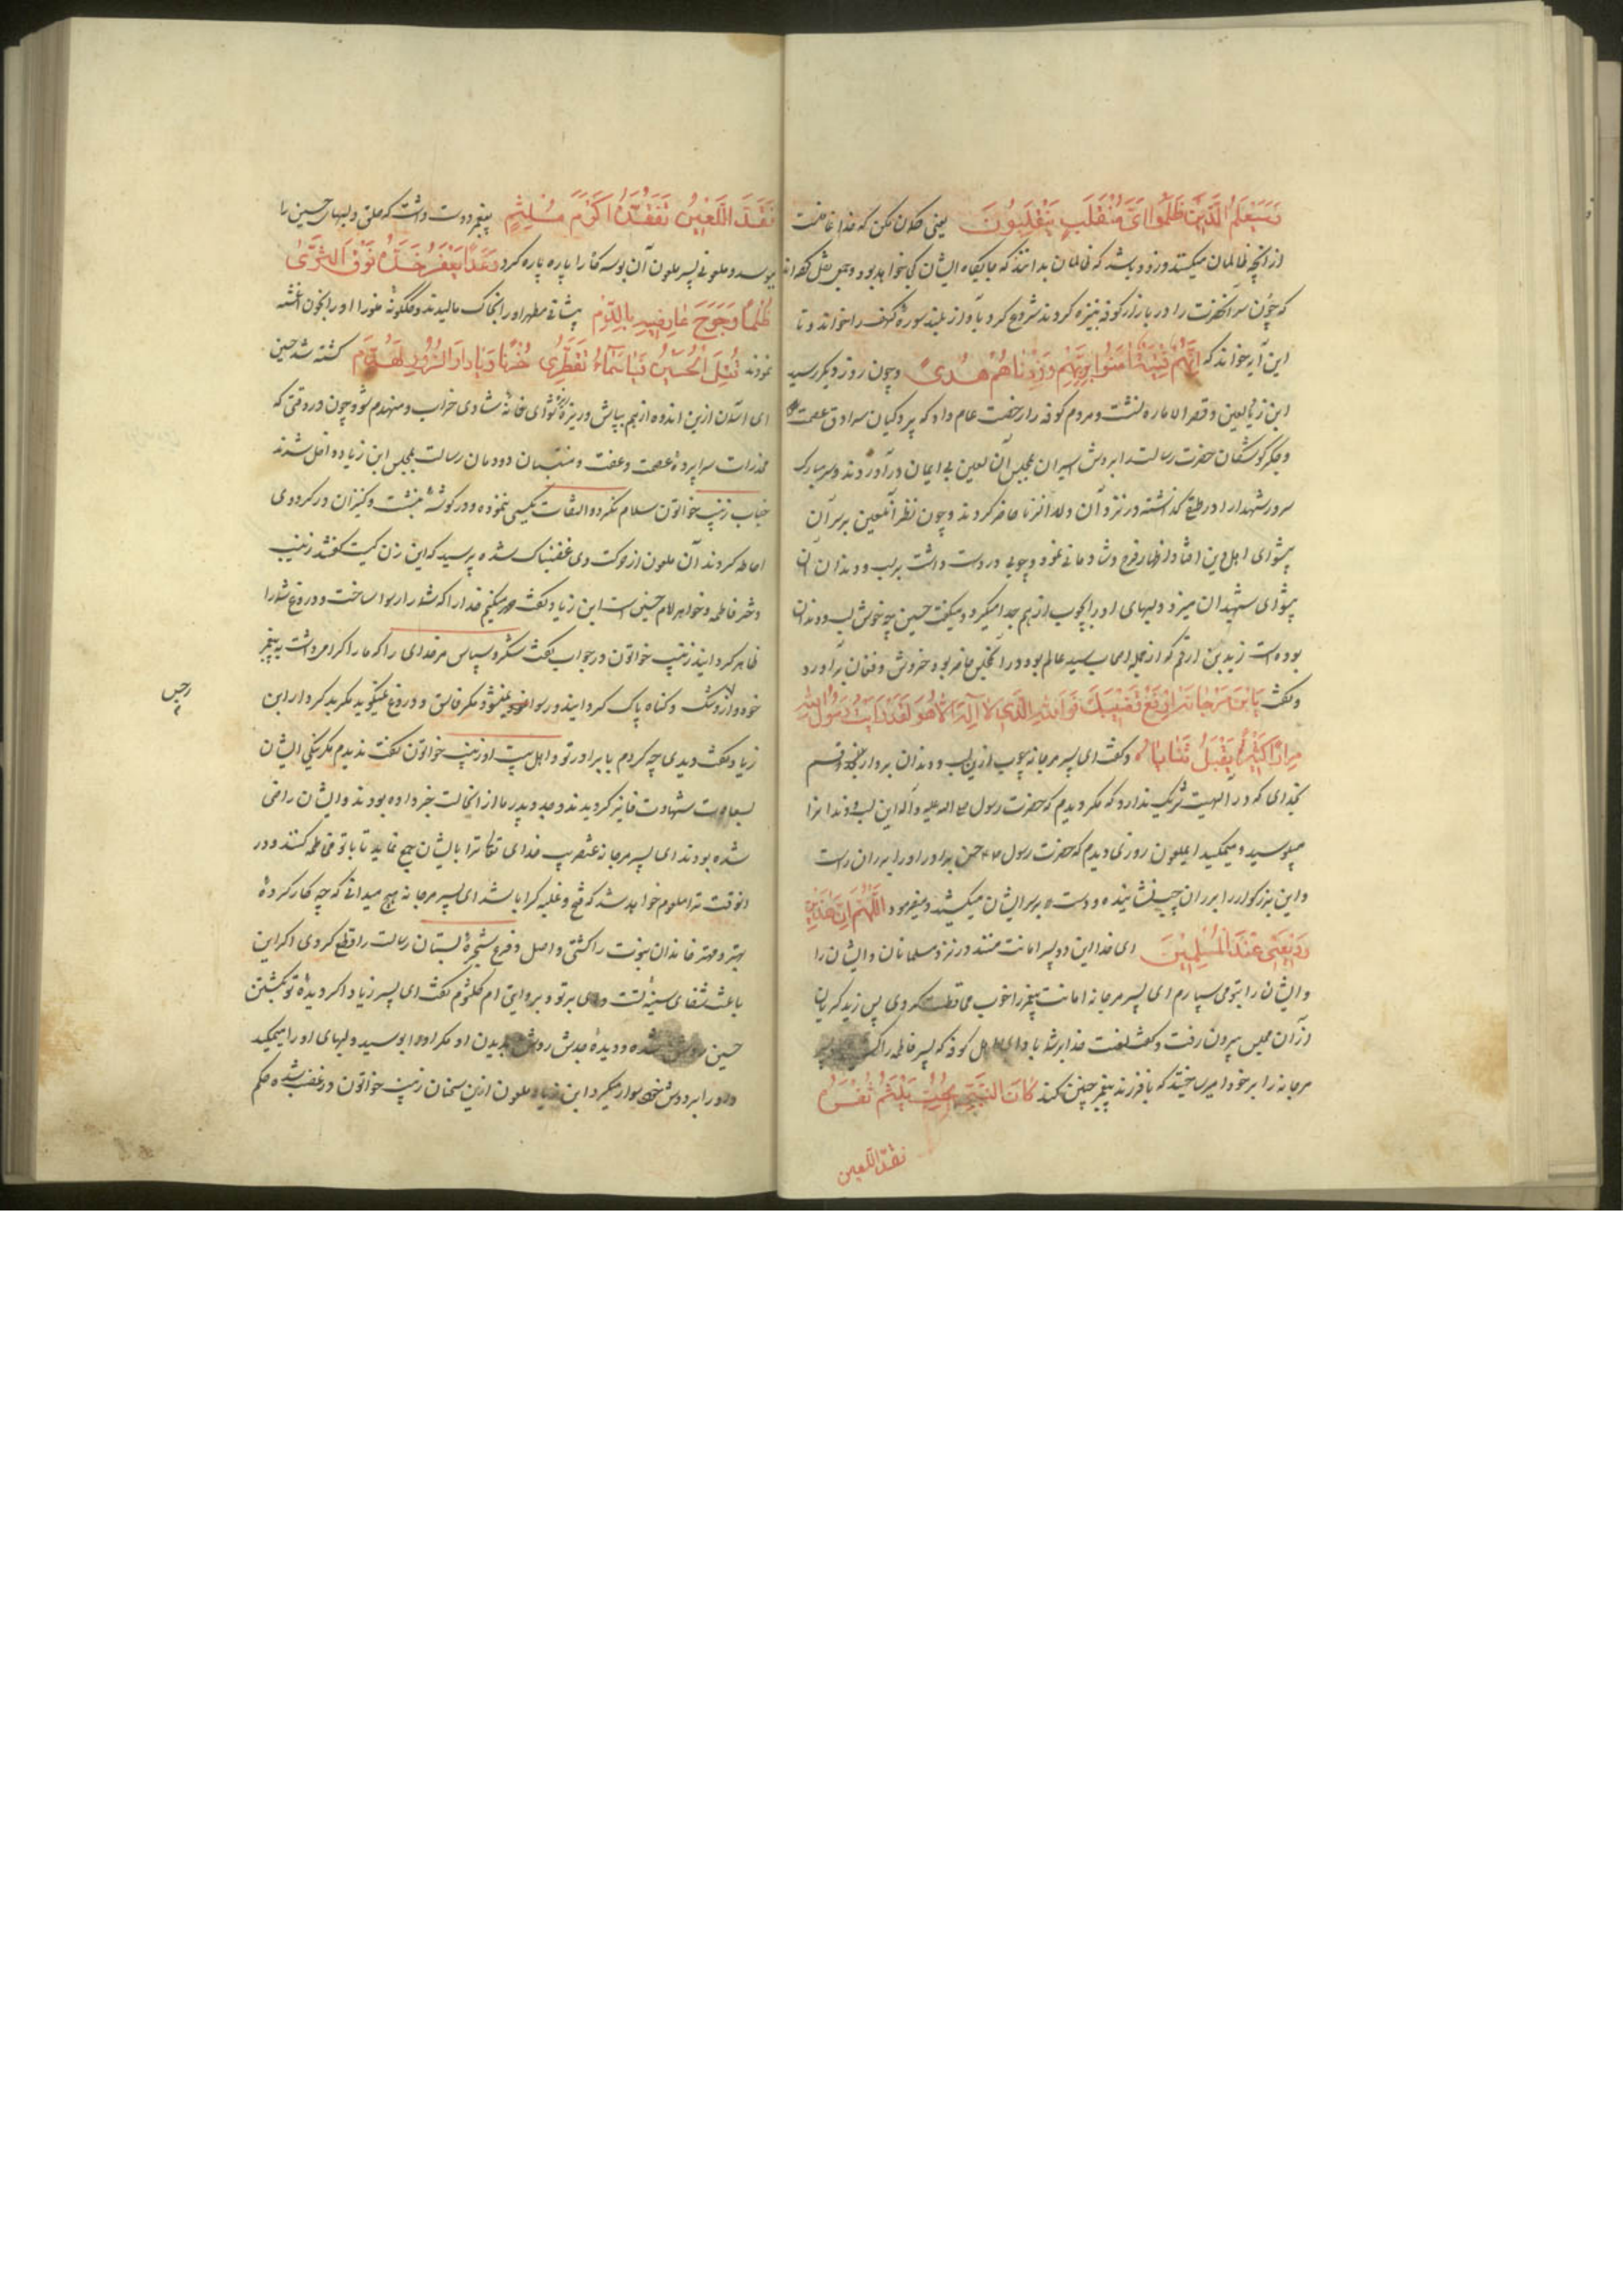 وَسَيَعْلَمُ الَّذِينَ ظَلَمُوا اَيَّ مُنْقَلَبٍ يَنْقَلِبُونَ یعنی کمان مکن که خدا غافلست
از آنچه ظالمان میکنند و زود باشد که ظالمان بدانند که جایگاه ایشان کجا خواهد بود و
که چون سر آنحضرت را در بازار کوفه بنیزه کردند شروع کرد بآواز بلند سوره کهف را خواند و تا
این آیه خواند که اِنَّهُمْ فِتْيَةٌ اٰمَنُوا بِرَبِّهِمْ وَزِدْنَاهُمْ هُدىً و چون روز دیگر رسید
ابن زیاد لعین در قصر الاماره نشست و مردم کوفه را رخصت عام داد که پردکیان سرادق عصمت
و جگرگوشگان حضرت رسالت را بروش اسیران بمجلس آن لعین بی ایمان درآوردند و سر مبارک
سرور شهدا را در طبق گذاشته در نزد آن ولدالزنا حاضر کردند و چون نظر آنلعین بر سر آن
پیشوای اهل دین افتاد اظهار فرح و شادمانی نمود و چوبی در دست داشت بر لب و دندان آن
پیشوای شهیدان میزد و لبهای او را بچوب از هم جدا میکرد و میگفت حسین چه خوش لب و دندان
بوده است زید بن ارقم که از جمله اصحاب سید عالم بود و در آنمجلس حاضر بود خروش و فغان برآورد
و گفت يَابْنَ مَرْجَانَه اِرْفَعْ قَضِيبَكَ فَوَاللهِ الَّذِي لَا اِلٰهَ اِلَّا هُوَ لَقَدْ رَاَيْتُ رَسُولَ اللهِ
مِرَارًا كَثِيرًا يُقَبِّلُ ثَنَايَاهُ و گفت ای پسر مرجانه چوب ازین لب و دندان بردار بخدا قسم
بخدای که در الهیت شریک ندارد که مکرر دیدم که حضرت رسول صلی الله علیه و آله این لب و دندانرا
میبوسید و میمکید ایملعون روزی دیدم که حضرت رسول حسن برادر او را بر ران راست
و این بزرگوار را بر ران چپ نشانیده و دست بر سر ایشان میکشید و میفرمود اَللّٰهُمَّ اِنَّ هٰذَيْنِ
وَدِيعَتِي عِنْدَ الْمُسْلِمِينَ ای خدا این دو پسر امانت منند در نزد مسلمانان و ایشان را
و ایشان را بتو می سپارم ای پسر مرجانه امانت پیغمبر را خوب محافظت کردی پس زید گریان
از آن مجلس بیرون رفت و گفت لعنت خدا بر شما باد ای اهل کوفه که پسر فاطمه را
مرجانه را بر خود امیر ساختید که با فرزند پیغمبر چنین کند كَانَ النَّبِيُّ يُحِبُّ يَلْثَمُ ثَغْرَهُ
فقدّ اللعین
فَقَدَّ اللَّعِينُ اَكْرَمَ مُلْثَمٍ پیغمبر دوست داشت که حلق و لبهای حسین را
بوسد و ملعونی پسر ملعون آن بوسه گاه را پاره پاره کرد خَدَّهُ فَوْقَ الثَّرَىٰ
ظُلْمًا بِالدَّمِ پیشانی مطهر او را بخاک مالیدند و را او را بخون آغشته
نمودند قُتِلَ الْحُسَيْنُ فَيَا سَمَاءُ تَفَطَّرِي حُزْنًا وَيَا دَارَ السُّرُورِ تَهَدَّمِ کشته شد حسین
ای آسمان ازین اندوه از هم بپاش و ریزه شو ای خانه شادی خراب و منهدم شو و چون در وقتی که
مخدرات سراپرده عصمت و عفت و منتسبان دودمان رسالت بمجلس ابن زیاد داخل شدند
جناب زینب خواتون سلام نکرد و التفات بکسی ننموده و در گوشه بنشست و کنیزان در گرد وی
احاطه کردند آن ملعون از حرکت وی غضبناک شده پرسید که این زن کیست گفتند زینب
دختر فاطمه و خواهر امام حسین است ابن زیاد گفت میکنم خدا را که شما را رسوا ساخت و دروغ شما را
ظاهر گردانید زینب خواتون در جواب گفت شکر و سپاس مر خدای را که ما را اکرام داشت به پیغمبر
خود و از شک و گناه پاک گردانید و رسوا نمیشود مگر فاسق و دروغ نمیگوید مگر بدکردار ابن
زیاد گفت دیدی چه کردم با برادر تو و اهل بیت او زینب خواتون گفت ندیدم مگر نیکی ایشان
بسعادت شهادت فایز گردیدند و جد و پدر ما از آنحالت خبر داده بودند و ایشان راضی
شده بودند ای پسر مرجانه عنقریب خدای تعالی ترا با ایشان جمع نماید تا با تو مخاصمه کنند و در
آنوقت ترا معلوم خواهد شد که فتح و غلبه کرا باشد ای پسر مرجانه هیچ میدانی که چه کار کرده
بهتر و مهتر خاندان نبوت را کشتی و اصل و فرع شجره بستان رسالت را قطع کردی اگر این
باعث شفای سینه تست وای بر تو و بروایتی ام کلثوم گفت ای پسر زیاد اگر دیده تو بکشتن
حسین روشن شده دیده جدش روشن بدیدن او مکرر او را بوسید و لبهای او را میمکید
و او را بر دوش خود سوار میکرد ابن زیاد ملعون ازین سخنان زینب خواتون در غضب شده حکم